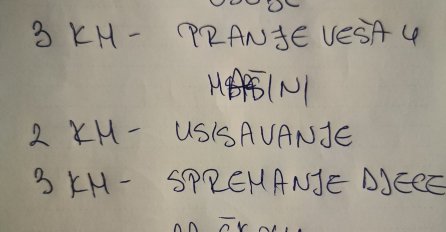 3 KM - PRANJE VEŠA U
MAŠINI
2 KM - USISAVANJE
3 KM - SPREMANJE DJECE